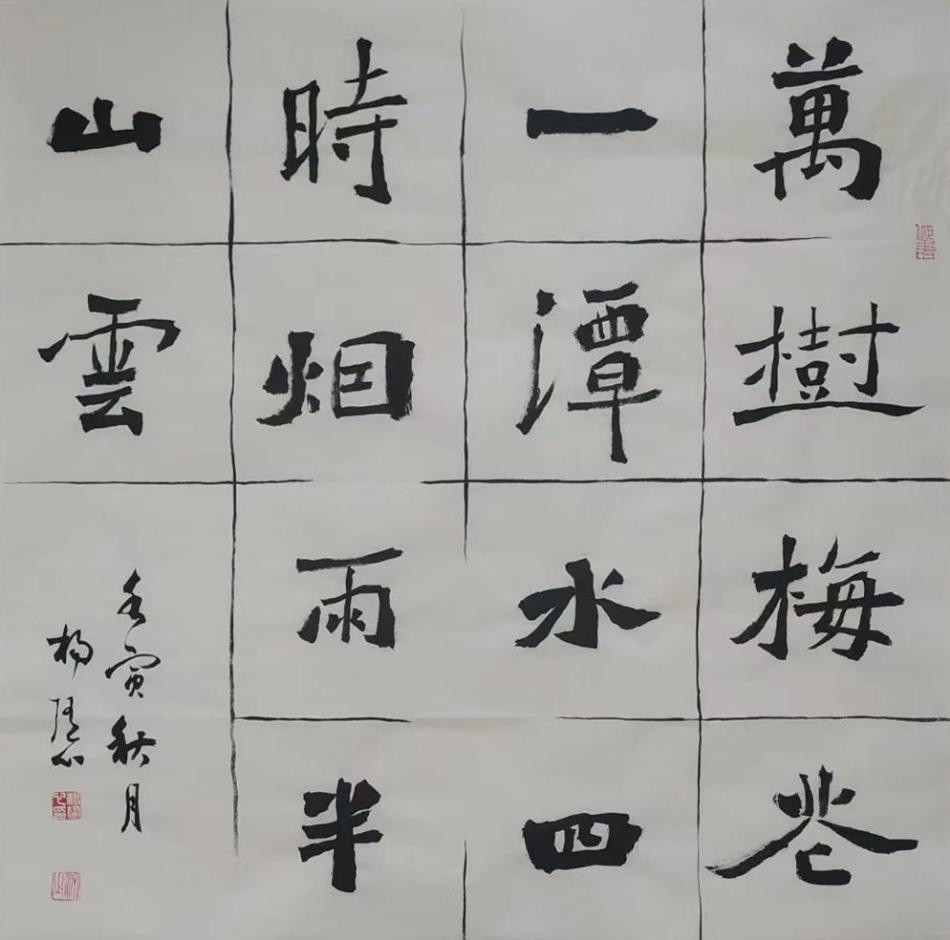 萬樹梅花
一潭水四
時烟雨半
山雲
壬寅秋月
楊